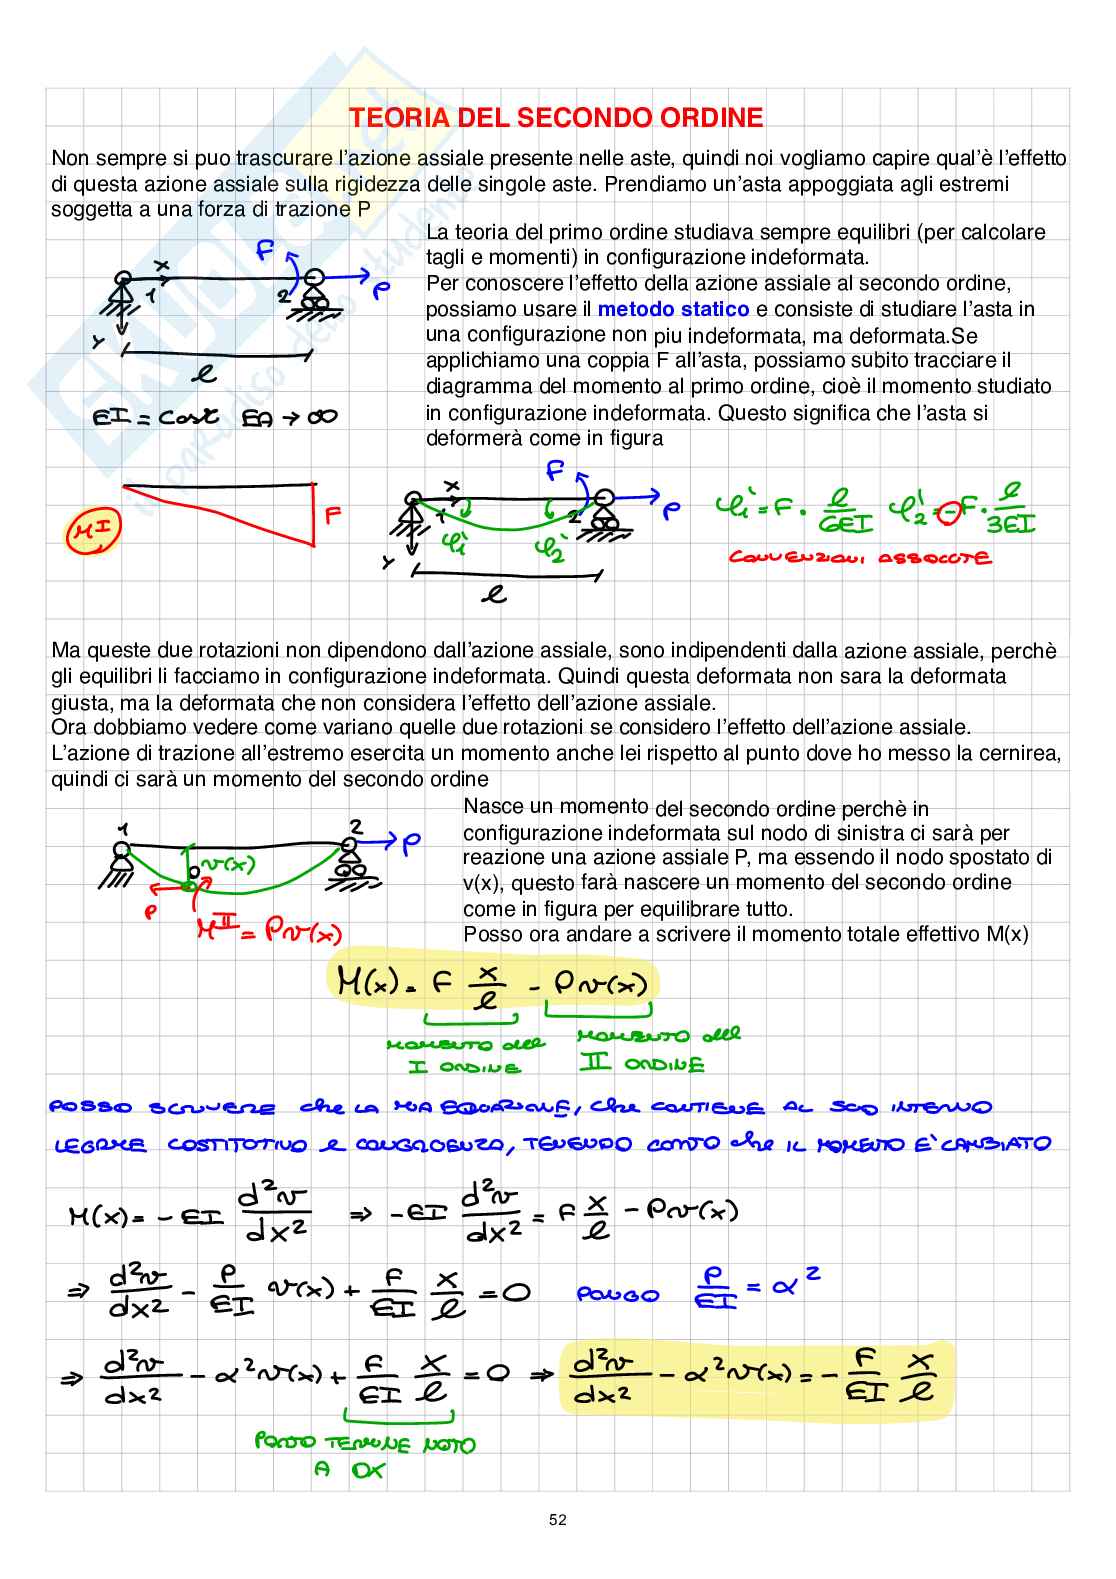 TEORIA DEL SECONDO ORDINE
Non sempre si puo trascurare l'azione assiale presente nelle aste, quindi noi vogliamo capire qual'è l'effetto
di questa azione assiale sulla rigidezza delle singole aste. Prendiamo un'asta appoggiata agli estremi
soggetta a una forza di trazione P
La teoria del primo ordine studiava sempre equilibri (per calcolare
tagli e momenti) in configurazione indeformata.
Per conoscere l'effetto della azione assiale al secondo ordine,
possiamo usare il metodo statico e consiste di studiare l'asta in
una configurazione non piu indeformata, ma deformata.Se
applichiamo una coppia F all'asta, possiamo subito tracciare il
diagramma del momento al primo ordine, cioè il momento studiato
in configurazione indeformata. Questo significa che l'asta si
deformerà come in figura
F
x
1
2
P
y
l
EI = cost EA → ∞
M^I
F
F
x
1
2
P
φ₁' φ₂'
l
φ₁' = F · l/6EI φ₂' = -F · l/3EI
CONVENZIONI ASSOLUTE
Ma queste due rotazioni non dipendono dall'azione assiale, sono indipendenti dalla azione assiale, perchè
gli equilibri li facciamo in configurazione indeformata. Quindi questa deformata non sara la deformata
giusta, ma la deformata che non considera l'effetto dell'azione assiale.
Ora dobbiamo vedere come variano quelle due rotazioni se considero l'effetto dell'azione assiale.
L'azione di trazione all'estremo esercita un momento anche lei rispetto al punto dove ho messo la cernirea,
quindi ci sarà un momento del secondo ordine
Nasce un momento del secondo ordine perchè in
configurazione indeformata sul nodo di sinistra ci sarà per
reazione una azione assiale P, ma essendo il nodo spostato di
v(x), questo farà nascere un momento del secondo ordine
come in figura per equilibrare tutto.
Posso ora andare a scrivere il momento totale effettivo M(x)
1
2
P
v(x)
P
M^II = Pv(x)
M(x) = F x/l - Pv(x)
MOMENTO del I ORDINE
MOMENTO del II ORDINE
POSSO SCRIVERE che LA MIA EQUAZIONE, che CONTIENE AL SUO INTERNO
LEGAME COSTITUTIVO e CONGRUENZA, TENENDO CONTO che IL MOMENTO E' CAMBIATO
M(x) = - EI d²v/dx² ⇒ -EI d²v/dx² = F x/l - Pv(x)
⇒ d²v/dx² - P/EI v(x) + F/EI x/l = 0 PONGO P/EI = α²
⇒ d²v/dx² - α²v(x) + F/EI x/l = 0 ⇒ d²v/dx² - α²v(x) = - F/EI x/l
PORTO TERMINE NOTO
A DX
52